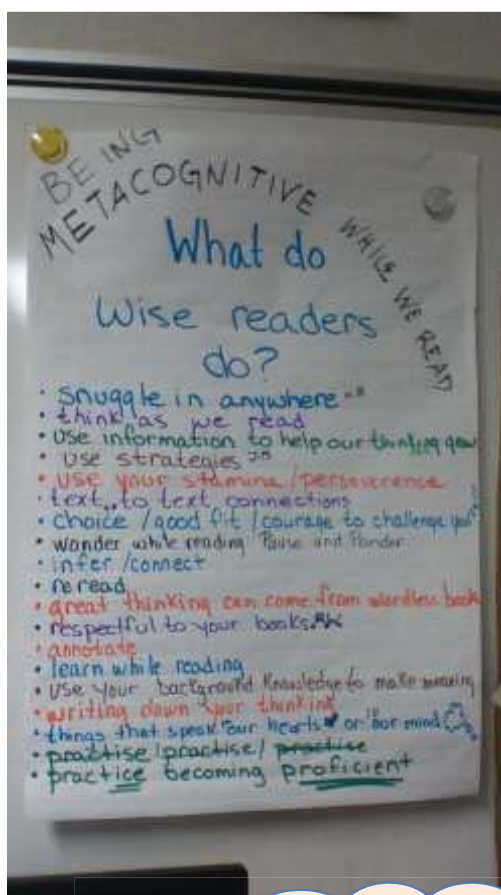 BEING
METACOGNITIVE WHILE WE READ
What do
Wise readers
do?
• snuggle in anywhere
• think as we read
• use information to help our thinking grow
• use strategies
• use your stamina/perseverence
• text to text connections
• choice/good fit/courage to challenge
• wonder while reading Pause and Ponder
• infer/connect
• reread
• great thinking can come from wordless book
• respectful to your books
• annotate
• learn while reading
• Use your background Knowledge to make meaning
• writing down your thinking
• things that speak our hearts or our mind
• practise/practise/practice
• practice becoming proficient